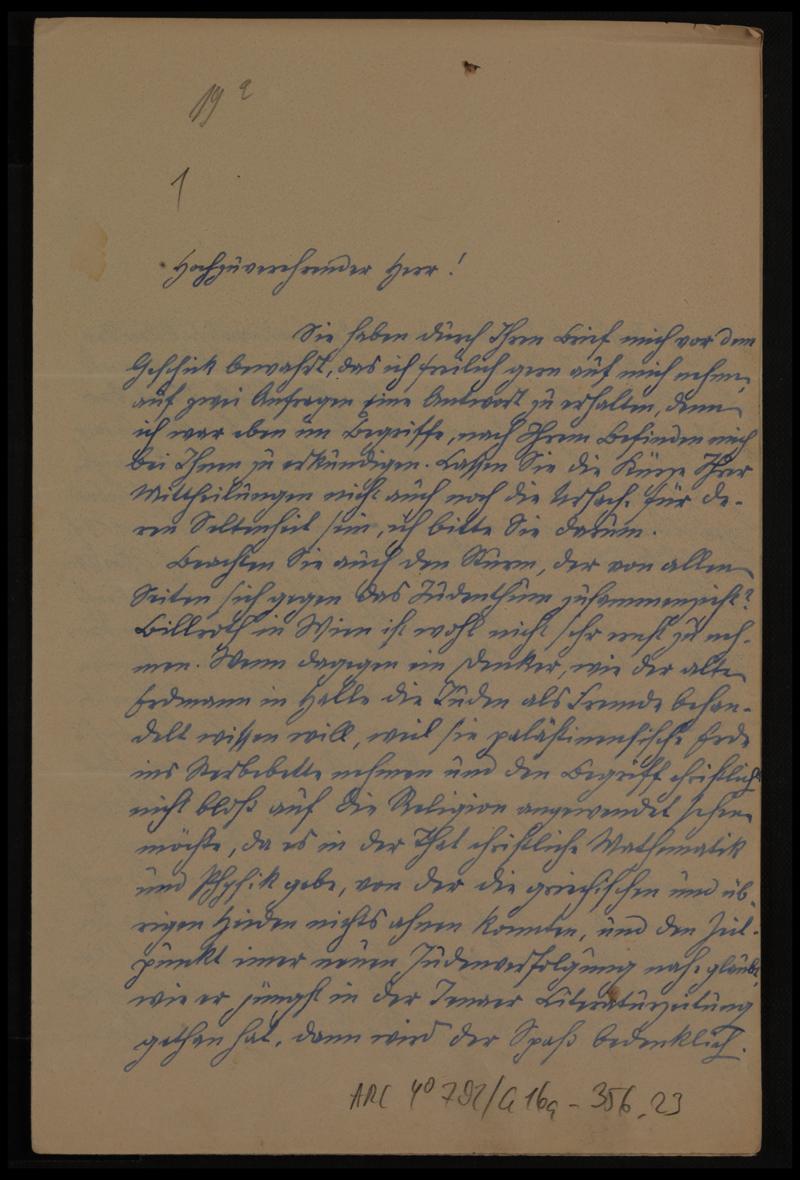 19 a
1
Hochzuverehrender Herr!
Sie haben durch Ihren Brief mich vor dem
Geschick bewahrt, das ich freilich gern auf mich nehme,
auf zwei Anfragen eine Antwort zu erhalten, denn
ich war eben im Begriffe, nach Ihrem Befinden mich
bei Ihnen zu erkundigen. Lassen Sie die Kürze Ihrer
Mittheilungen nicht auch noch die Ursache für de-
ren Seltenheit sein, ich bitte Sie darum.
Beachten Sie auch den Sturm, der von allen
Seiten sich gegen das Judenthum zusammenzieht?
Billroth in Wien ist wohl nicht sehr ernst zu neh-
men. Wenn dagegen ein Denker, wie der alte
Erdmann in Halle die Juden als Fremde behan-
delt wissen will, weil sie palästinensische Erde
ins Sterbebette nehmen und den Begriff christlich
nicht bloß auf die Religion angewendet sehen
möchte, da es in der That christliche Mathematik
und Physik gebe, von der die griechischen und üb-
rigen Heiden nichts ahnen konnten, und den Zeit-
punkt einer neuen Judenverfolgung nahe glaubt,
wie er jüngst in der Jenaer Literaturzeitung
gethan hat, dann wird der Spaß bedenklich.
ARC 4º 792/G 16a - 356.23